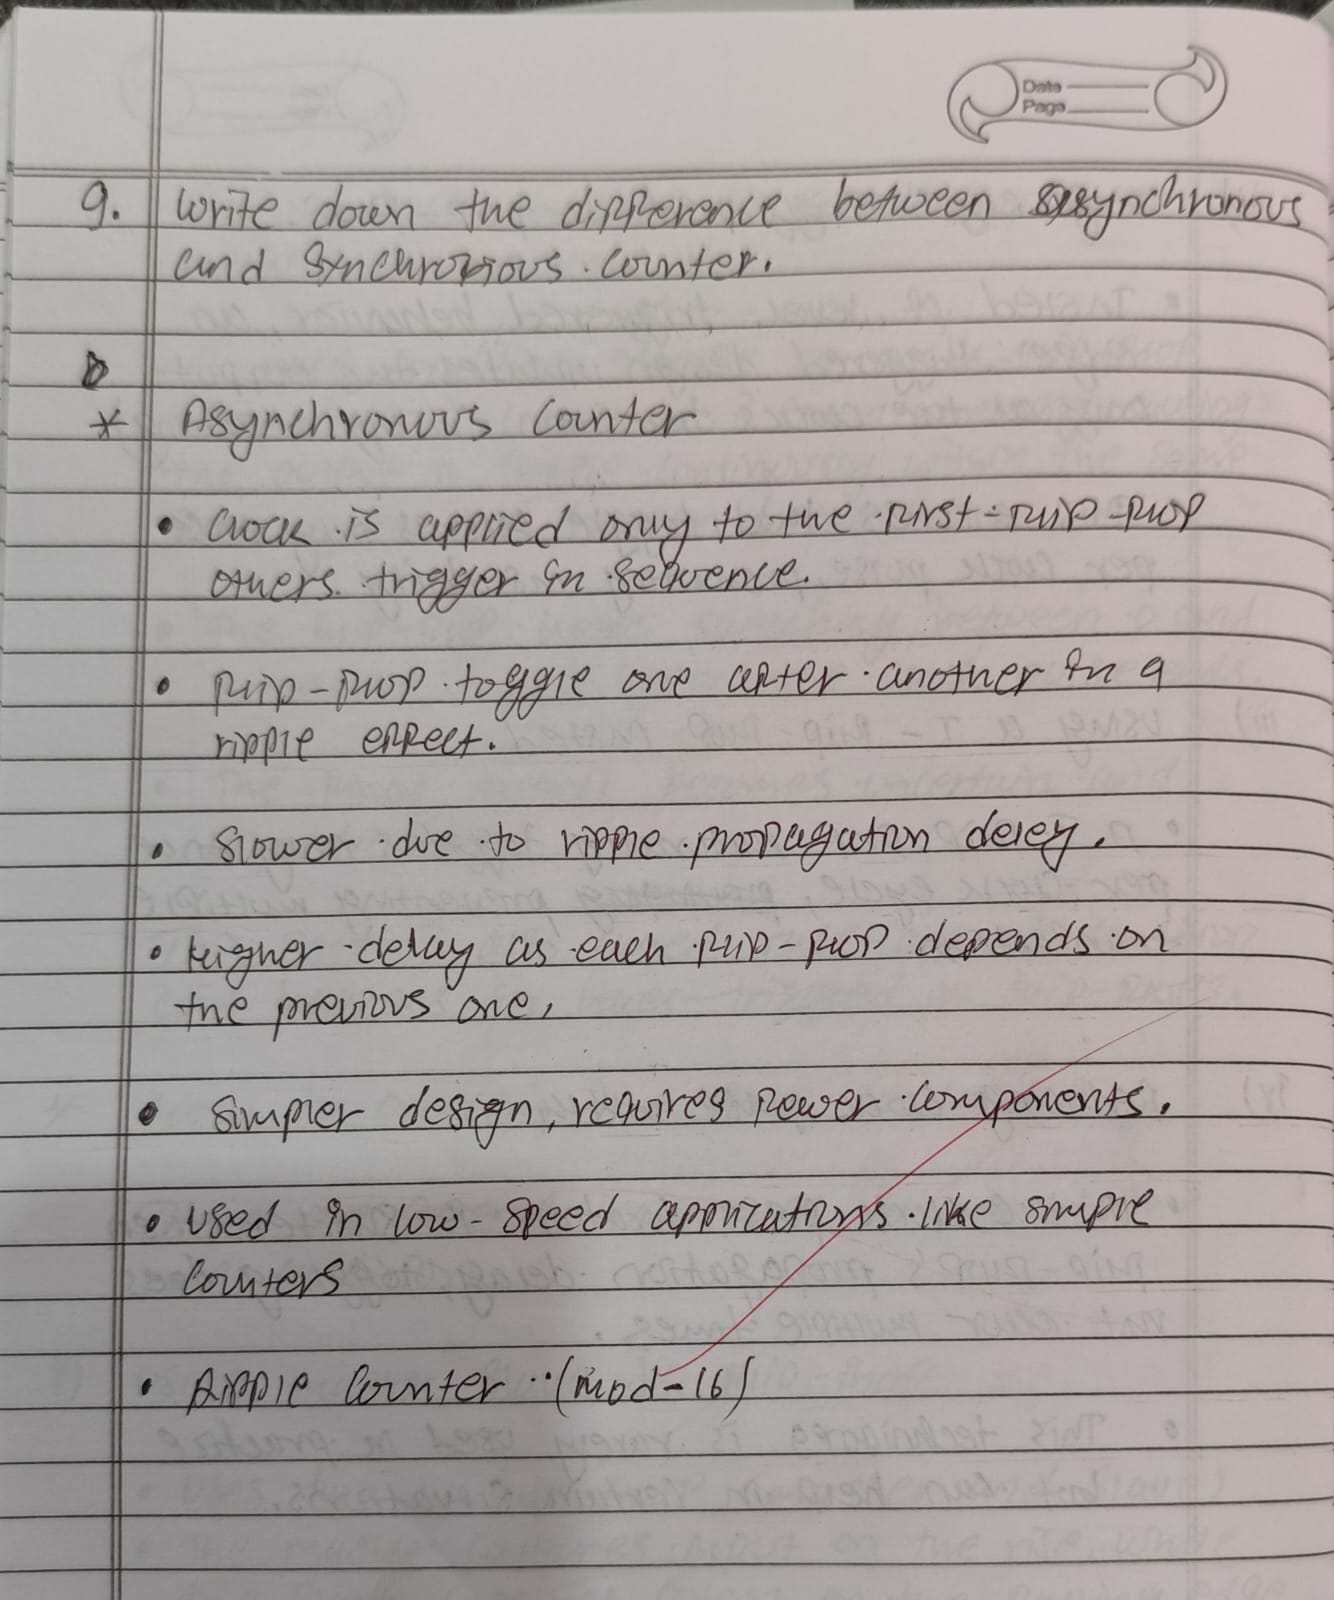 Date
Page
9. Write down the difference between asynchronous
and Synchronous counter.
* Asynchronous Counter
• Clock is applied only to the first-flip-flop
others trigger in sequence.
• flip-flop toggle one after another in a
ripple effect.
• Slower due to ripple propagation deley.
• Higher delay as each flip-flop depends on
the previous one,
• Simpler design, requires fewer components.
• Used in low-speed applications like simple
Counters
• Ripple Counter (mod-16)